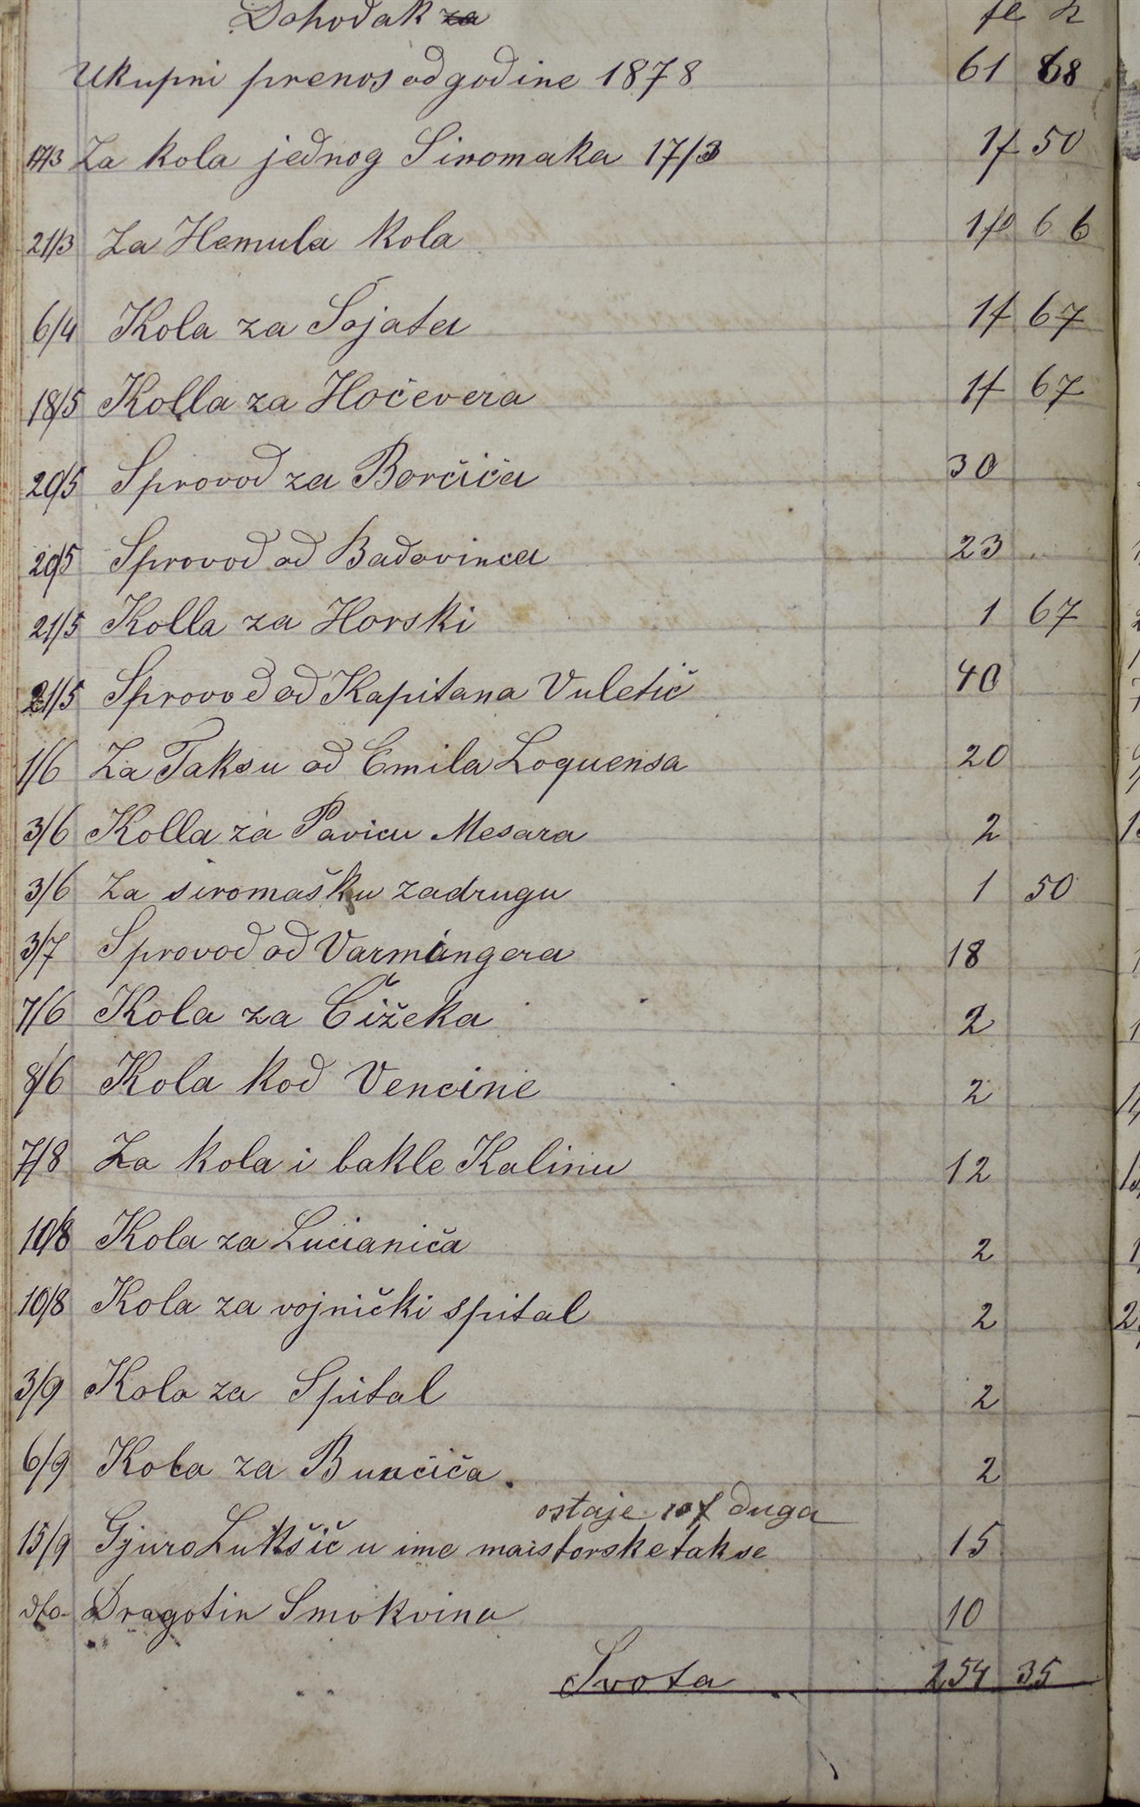 Dohodak za fl n
Ukupni prenos od godine 1878 61 68
17/3 Za kola jednog Siromaka 17/3 1f 50
21/3 Za Hemula kola 1fl 66
6/4 Kola za Šojata 1f 67
18/5 Kolla za Hočevera 1f 67
20/5 Sprovod za Borčića 30
20/5 Sprovod od Badovinca 23
21/5 Kolla za Horski 1 67
21/5 Sprovod od Kapitana Vuletić 40
1/6 Za Taksu od Emila Loquensa 20
3/6 Kolla za Pavicu Mesara 2
3/6 Za siromašku zadrugu 1 50
3/7 Sprovod od Varmingera 18
7/6 Kola za Čižeka 2
8/6 Kola kod Vencine 2
7/8 Za kola i bakle Kalinu 12
10/8 Kola za Lucianića 2
10/8 Kola za vojnički spital 2
3/9 Kola za Spital 2
6/9 Kola za Bunčića. 2
ostaje 10f duga
15/9 Gjuro Lukšić u ime maistorske takse 15
dto- Dragotin Smokvina 10
Svota 254 35